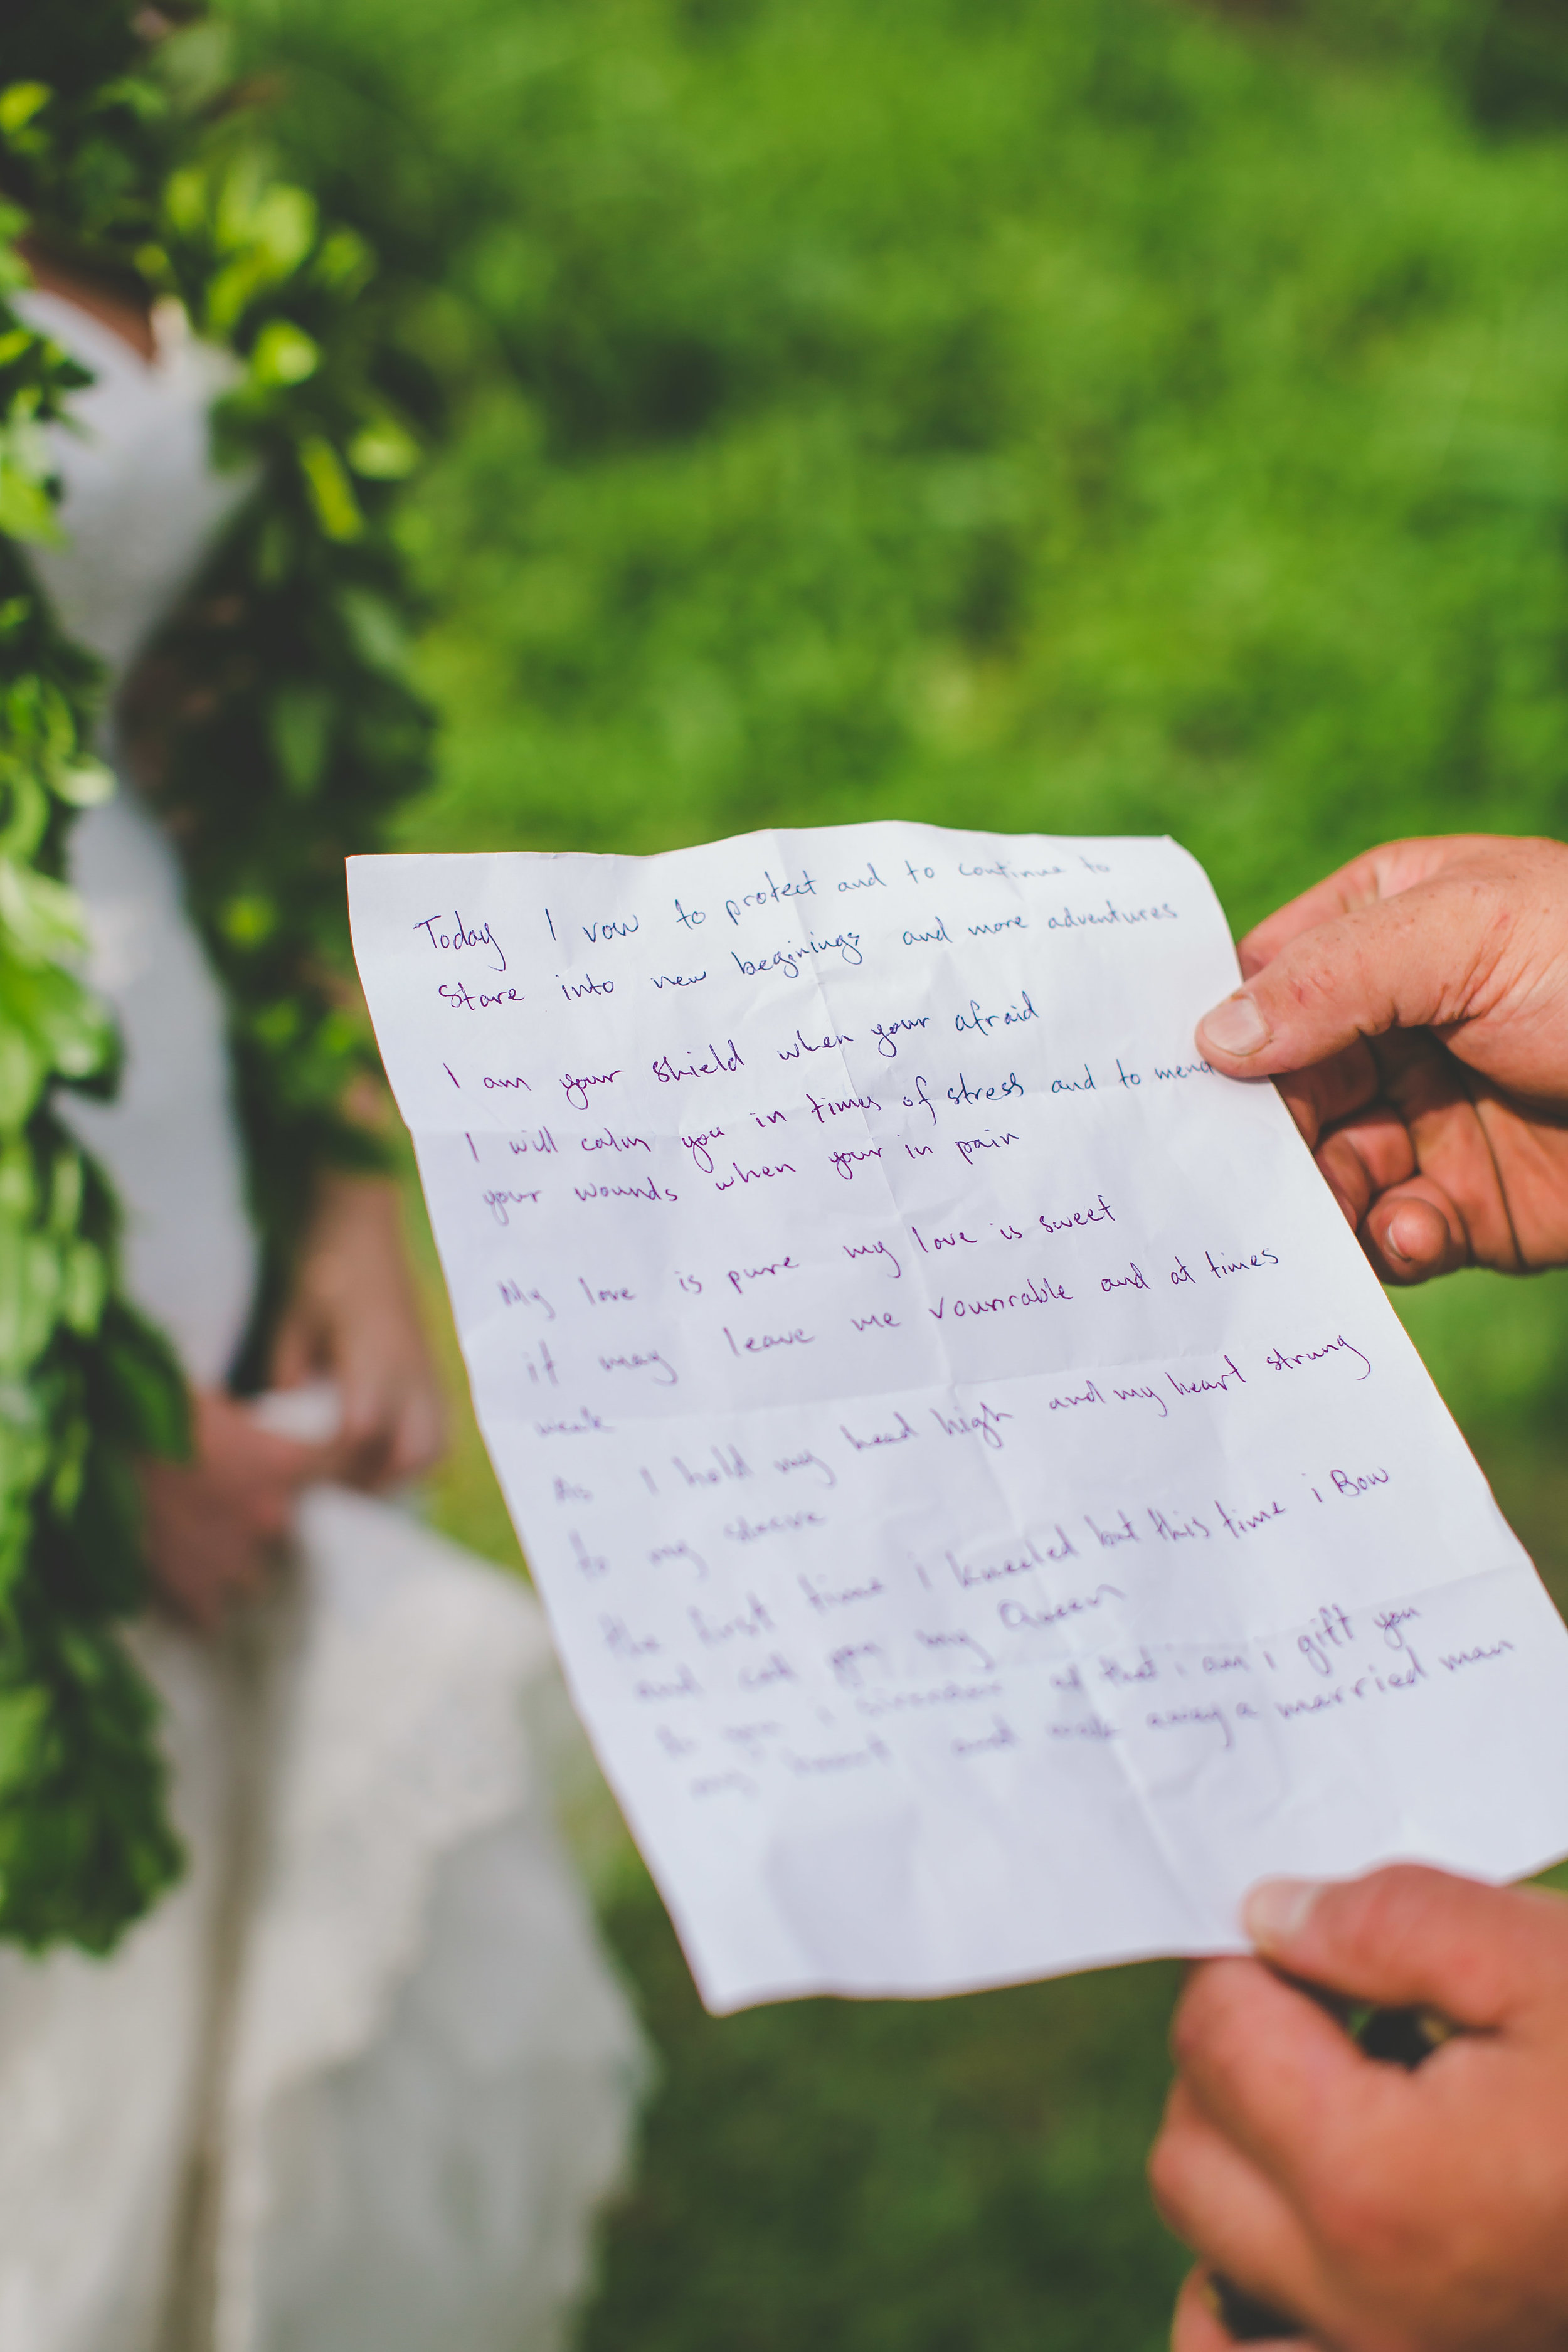 Today I vow to protect and to continue to
stare into new beginings and more adventures
I am your shield when your afraid
I will calm you in times of stress and to mend
your wounds when your in pain
My love is pure my love is sweet
it may leave me vounrable and at times
weak
As I hold my head high and my heart strung
to my sleeve
the first time i kneeled but this time i Bow
and call you my Queen
to you i surrender all that i am i gift you
my heart and walk away a married man